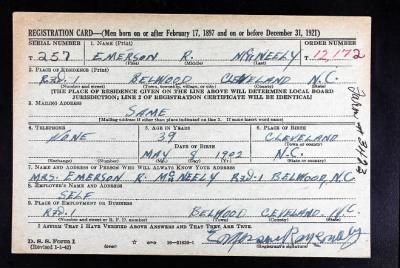 REGISTRATION CARD—(Men born on or after February 17, 1897 and on or before December 31, 1921)
SERIAL NUMBER 1. NAME (Print) ORDER NUMBER
T. 257 EMERSON R. McNEELY T. 12,172
(First) (Middle) (Last)
2. PLACE OF RESIDENCE (Print)
RFD-1 BELWOOD CLEVELAND N.C.
(Number and street) (Town, township, village, or city) (County) (State)
[THE PLACE OF RESIDENCE GIVEN ON THE LINE ABOVE WILL DETERMINE LOCAL BOARD
JURISDICTION; LINE 2 OF REGISTRATION CERTIFICATE WILL BE IDENTICAL]
3. MAILING ADDRESS
SAME
[Mailing address if other than place indicated on line 2. If same insert word same]
4. TELEPHONE 5. AGE IN YEARS 6. PLACE OF BIRTH
NONE 39 CLEVELAND
DATE OF BIRTH (Town or county)
MAY 9 1902 N.C.
(Exchange) (Number) (Mo.) (Day) (Yr.) (State or country)
7. NAME AND ADDRESS OF PERSON WHO WILL ALWAYS KNOW YOUR ADDRESS
MRS. EMERSON R. McNEELY RFD-1 BELWOOD, N.C.
8. EMPLOYER'S NAME AND ADDRESS
SELF
9. PLACE OF EMPLOYMENT OR BUSINESS
RFD.1 BELWOOD CLEVELAND. N.C.
(Number and street or R. F. D. number) (Town) (County) (State)
I AFFIRM THAT I HAVE VERIFIED ABOVE ANSWERS AND THAT THEY ARE TRUE.
D. S. S. Form 1
(Revised 1-1-42) (over)